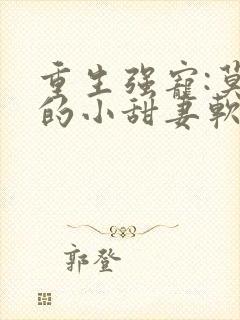 重生强寵:莫
的小甜妻軟
郭登